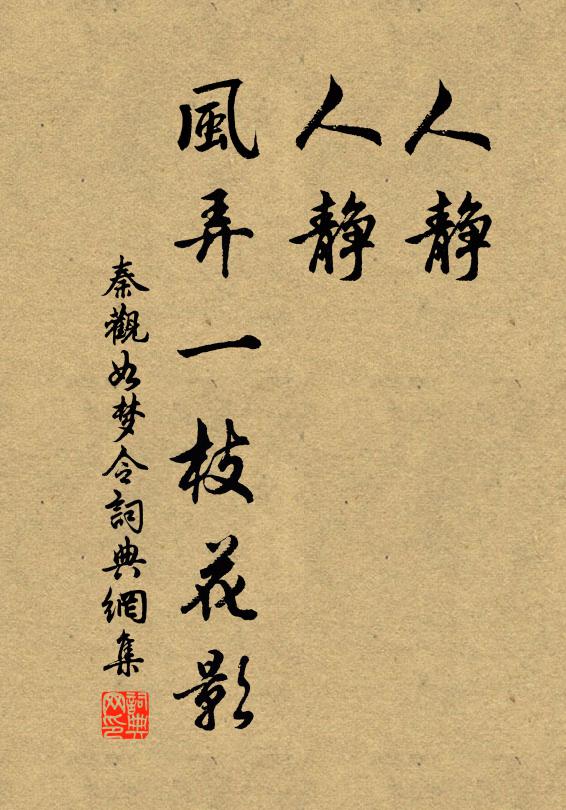 人静
人静
風弄一枝花影
秦觀如梦令詞典網集
詞典
网印